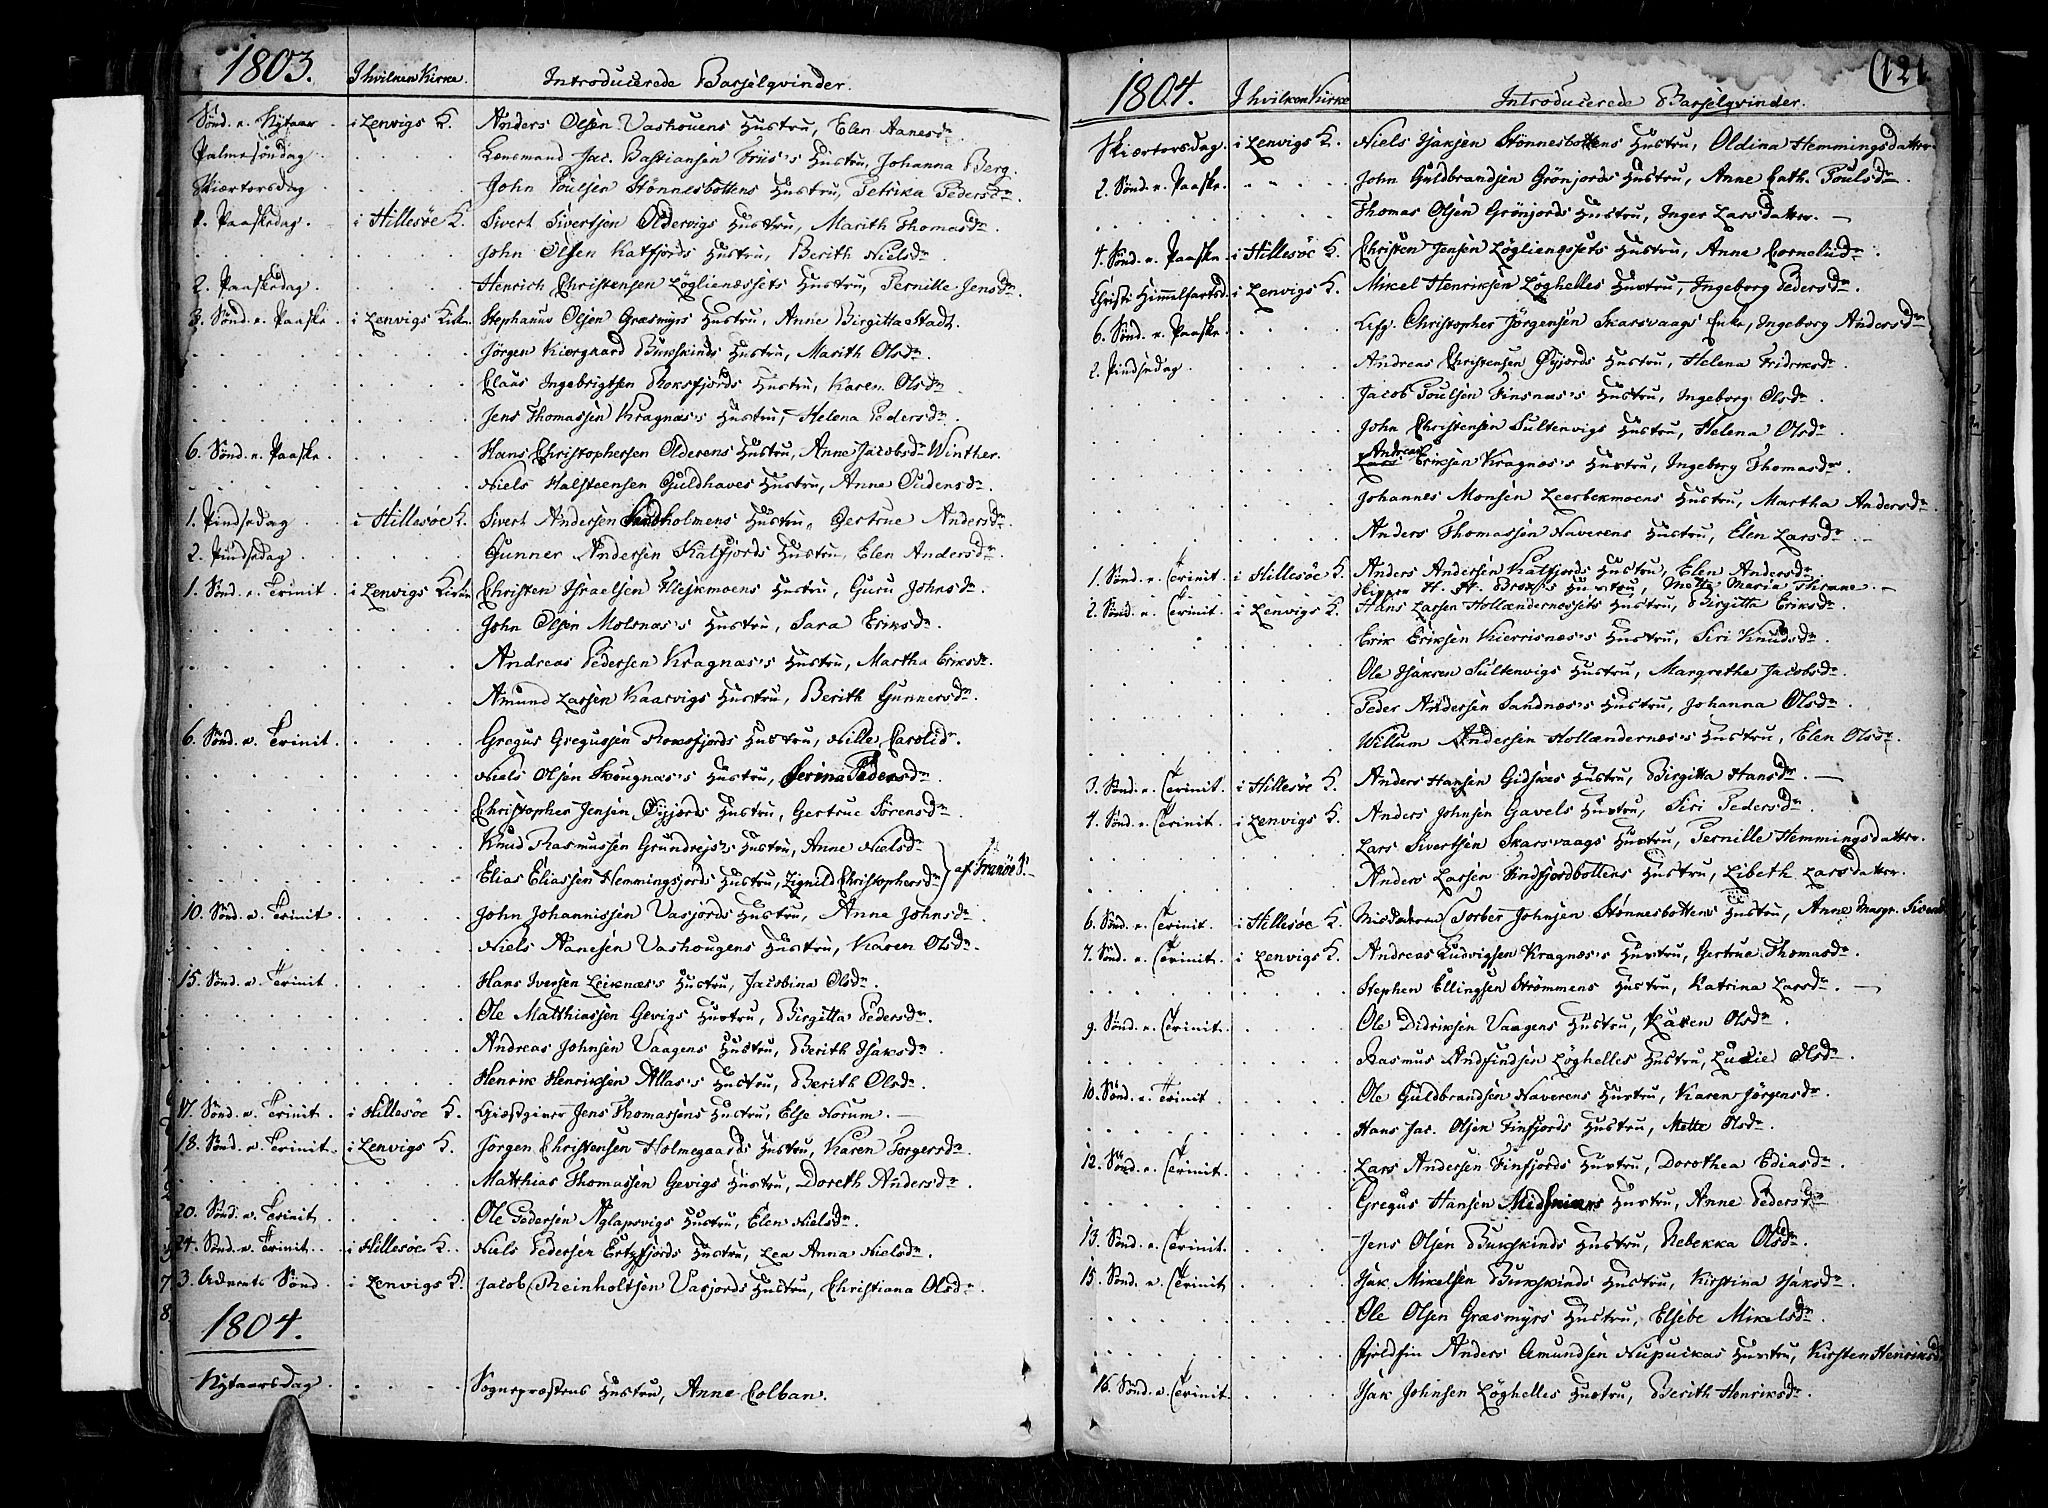 1803. I hvilken Kirke. Introducerede Barselqvinder.
Sönd. e. Nytaar i Lenvigs K. Anders Olsen Vashouens Hustru, Elen Aanesdr.
Palmesöndag Lensmand Jac. Bastiansen Friis's Hustru, Johanna Berg.
Skiærtorsdag John Poulsen Stönnesbottens Hustru, Petrika Pedersdr.
1. Paaskedag. i Hillesöe K. Sivert Sivertsen Oldervigs Hustru, Marith Thomasdr.
John Olsen Katfjords Hustru, Berith Nielsdr.
2. Paaskedag. Henrich Christensen Löglienæssets Hustru, Pernille Jensdr.
3. Sönd. e. Paaske i Lenvigs Kirke Stephanus Olsen Græsmyrs Hustru, Anne Birgitta Stadt.
Jörgen Kiergaard Bukskinds Hustru, Marith Olsdr.
Claus Ingebrigtsen Roksfjords Hustru, Karen Olsdr.
Jens Thomassen Kragnæs's Hustru, Helena Pedersdr.
6. Sönd. e. Paaske. Hans Christophersen Olderens Hustru, Anne Jacobsdr Winther.
Niels Halsteensen Guldhaves Hustru, Anne Oudensdr.
1. Pindsedag i Hillesöe K. Sivert Andersen Sandholmens Hustru, Gertrue Andersdr.
2. Pindsedag. Gunner Andersen Katfjords Hustru, Elen Andersdr.
1. Sönd. e. Trinit i Lenvigs Kirke Christen Israelsen Fleskmoens Hustru, Guru Johnsdr.
John Olsen Molsnæs's Hustru, Sara Eriksdr.
Andreas Pedersen Kragnæs's Hustru, Martha Eriksdr.
Amund Larsen Kaarvigs Hustru, Berith Gunnersdr.
6. Sönd. e. Trinit. Gregus Gregussen Roksfjords Hustru, Nille Carolidr.
Niels Olsen Skougnæs's Hustru, Serina Pedersdr.
Christopher Jensen Öyjords Hustru, Gertrue Sörensdr.
Knud Rasmussen Grundrejs's Hustru, Anne Nielsdr
Elias Eliassen Hemmingsjords Hustru, Zignild Christophersdr } af Tranöe P.
10. Sönd. e. Trinit. John Johannissen Vasjords Hustru, Anne Johnsdr.
Niels Aanesen Vashougens Hustru, Karen Olsdr.
15. Sönd. e. Trinit. Hans Iversen Leiknæs's Hustru, Jacobina Olsdr.
Ole Matthiassen Gevigs Hustru, Birgitta Pedersdr.
Andreas Johnsen Vaagens Hustru, Berith Isaksdr.
Henrik Henriksen Allas's Hustru, Berith Olsdr.
17. Sönd. e. Trinit. i Hillesöe K. Giæstgiver Jens Thomassens Hustru, Else Norum.
18. Sönd. e. Trinit. i Lenvigs K. Jörgen Christensen Holmegaards Hustru, Karen Torgersdr.
Matthias Thomassen Gevigs Hustru, Doreth Andersdr.
20. Sönd. e. Trinit. Ole Pedersen Aglapsvigs Hustru, Elen Nielsdr.
24. Sönd. e. Trinit. i Hillesöe K. Niels Pedersen Ertzfjords Hustru, Lea Anna Nielsdr.
3. Advents Sönd i Lenvigs K. Jacob Reinholtsen Vasjords Hustru, Christiana Olsdr.
1804.
Nytaarsdag. Sognepræstens Hustru, Anne Colban.
1804. I hvilken Kirke Introducerede Barselqvinder. 121
Skiærtorsdag. i Lenvigs K. Niels Isaksen Stönnesbottens Hustru, Oldina Hemmingsdatter
2. Sönd. e. Paaske. John Guldbrandsen Grönjords Hustru, Anne Cath. Poulsdr
Thomas Olsen Grönjords Hustru, Inger Larsdatter.
4. Sönd. e. Paaske i Hillesöe K. Christen Jensen Löglienæssets Hustru, Anne Cornelidr.
Christi Himmelfartsd. i Lenvigs K. Mikel Henriksen Löghelles Hustru, Ingeborg Pedersdr.
6. Sönd. e. Paaske Afg. Christopher Jörgensen Skarsvaags Enke, Ingeborg Andersdr
2. Pindsedag. Andreas Christensen Öyjords Hustru, Helena Fridriksdr.
Jacob Poulsen Finsnæs's Hustru, Ingeborg Olsdr.
John Christensen Sultenvigs Hustru, Helena Olsdr.
Andreas
Lars Eriksen Kragnæs's Hustru, Ingeborg Thomasdr.
Johannes Monsen Leerbekmoens Hustru, Martha Andersdr.
Anders Thomassen Naverens Hustru, Elen Larsdr.
1. Sönd. e. Trinit. i Hillesöe K. Anders Andersen Katfjords Hustru, Elen Andersdr.
Skipper H. A. Brox's Hustru, Mette Maria Thrane.
2. Sönd. e. Trinit. i Lenvigs K. Hans Larsen Hollændernæssets Hustru, Birgitta Eriksdr.
Erik Eriksen Kierrisnæs's Hustru, Siri Knudsdr.
Ole Isaksen Sultenvigs Hustru, Margrethe Jacobsdr.
Peder Andersen Sandnæs's Hustru, Johanna Olsdr.
Willum Andersen Hollændernæs's Hustru, Elen Olsdr.
3. Sönd. e. Trinit. i Hillesöe K. Anders Hansen Gidskes Hustru, Birgitta Hansdr.
4. Sönd. e. Trinit. i Lenvigs K. Anders Johnsen Gavels Hustru, Siri Pedersdr.
Lars Sivertsen Skarsvaags Hustru, Pernille Hemmingsdatter.
Anders Larsen Findfjordbottens Hustru, Libeth Larsdatter.
6. Sönd. e. Trinit. i Hillesöe K. Torber Johnsen Stönnesbottens Hustru, Anne Margr.
7. Sönd. e. Trinit. i Lenvigs K. Andreas Ludvigsen Kragnæs's Hustru, Gertrue Thomasdr.
Stephen Ellingsen Strömmens Hustru, Katrina Larsdr.
9. Sönd. e. Trinit. Ole Didriksen Vaagens Hustru, Karen Olsdr.
Rasmus Andfindsen Löghelles Hustru, Lucie Olsdr.
10. Sönd. e. Trinit Ole Guldbrandsen Naverens Hustru, Karen Jörgensdr.
Hans Jac. Olsen Finfjords Hustru, Mette Olsdr.
12. Sönd. e. Trinit. Lars Andersen Finfjords Hustru, Dorothea Ediasdr.
Gregus Hansen Hustru, Anne Pedersdr
13. Sönd. e. Trinit. Jens Olsen Bukskinds Hustru, Rebekka Olsdr.
15. Sönd. e. Trinit. Isak Mikelsen Bukskinds Hustru, Kirstina Isaksdr.
Ole Olsen Græsmyrs Hustru, Elsebe Mikelsdr.
Fjeldfin Anders Amundsen Hustru, Kirsten Henriksd
16. Sönd. e. Trinit. Isak Johnsen Löghelles Hustru, Berith Henriksdr.